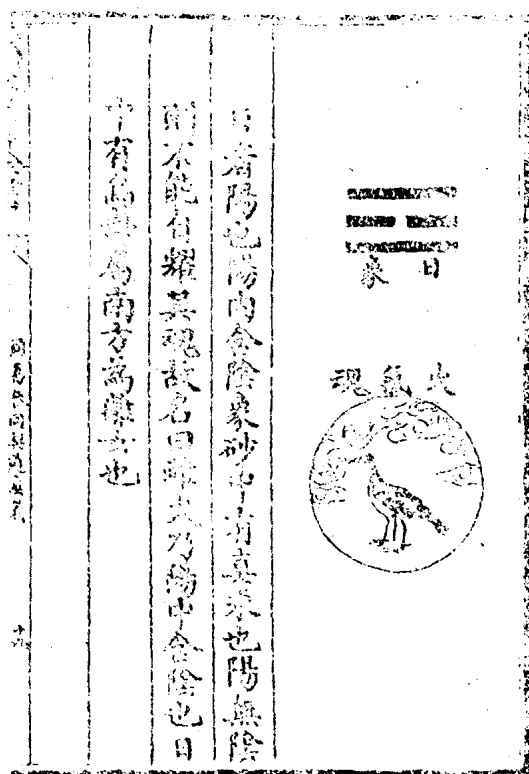 日象
火氣魂
日者陽也陽内含陰象砂中有真汞也陽無陰
則不能自耀其魂故名曰雌火乃陽中含陰也日
中有烏卦屬南方為離女也
十九